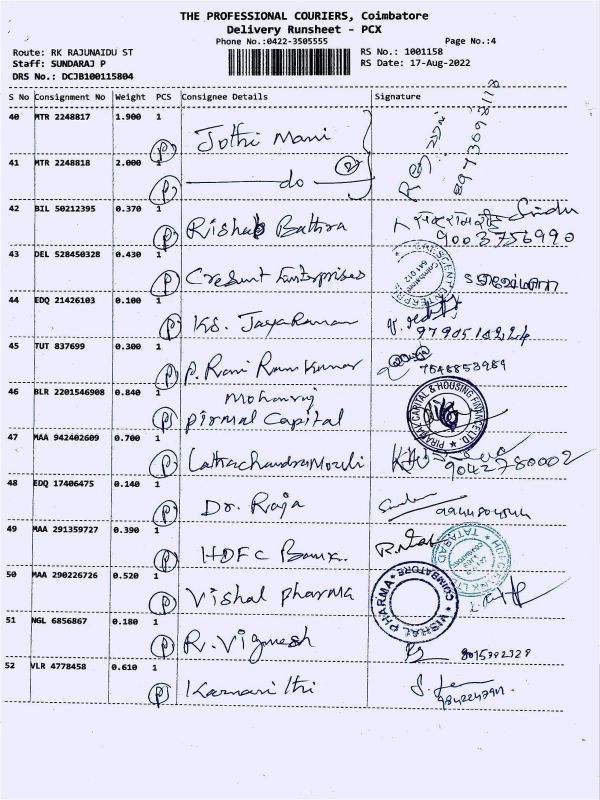 THE PROFESSIONAL COURIERS, Coimbatore
Delivery Runsheet - PCX
Phone No.:0422-3505555
Page No.:4
Route: RK RAJUNAIDU ST
RS No.: 1001158
Staff: SUNDARAJ P
RS Date: 17-Aug-2022
DRS No.: DCJB100115804
S No Consignment No Weight PCS Consignee Details Signature
40 MTR 2248817 1.900 1 P Jothi Mani
41 MTR 2248818 2.000 1 P do 2
42 BIL 50212395 0.370 1 P Rishab Bathra 9003756990
43 DEL 528450328 0.430 1 P Cresent Enterprises
44 EDQ 21426103 0.100 1 P KS. Jayaraman
45 TUT 837699 0.300 1 P P. Rani Ram Kumar 7548853989
46 BLR 2201546908 0.840 1 P Mohanraj
Pirmal Capital
PIRAMAL CAPITAL & HOUSING FINANCE LTD.
47 MAA 942402609 0.700 1 P 9042780002
48 EDQ 17406475 0.140 1 P Dr. Raja
49 MAA 291359727 0.390 1 P HDFC Bank.
50 MAA 290226726 0.520 1 P Vishal pharma
VISHAL PHARMA ★ COIMBATORE
51 NGL 6856867 0.180 1 P R. Vignesh
52 VLR 4778458 0.610 1 P